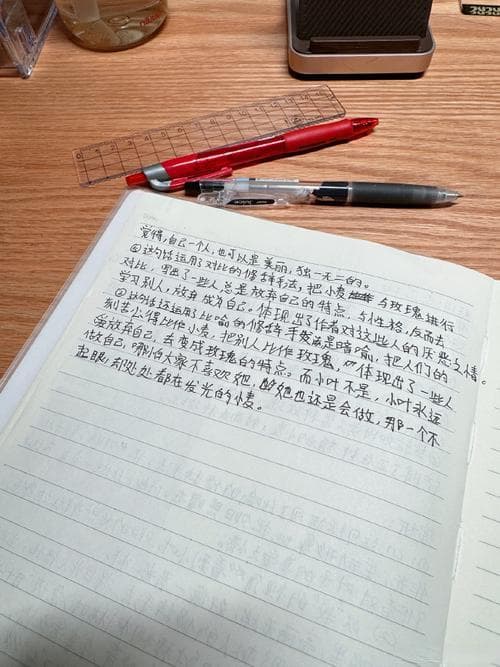 觉得,自己一个人,也可以是美丽,独一无二的。
①这句话运用了对比的修辞手法,把小麦与玫瑰进行
对比,写出了一些人总是放弃自己的特点与性格,反而去
学习别人,放弃成为自己。体现出了作者对这些人的厌烦之情。
②这句话运用了比喻的修辞手法是暗喻,把人们的
制告公得比作小麦,把别人比作玫瑰,体现出了一些人
会放弃自己,去变成玫瑰的特点。而小叶不是,小叶永远
做自己,哪怕大家不喜欢她,她也还是会做,那一个不
起眼,却处处都在发光的小麦。